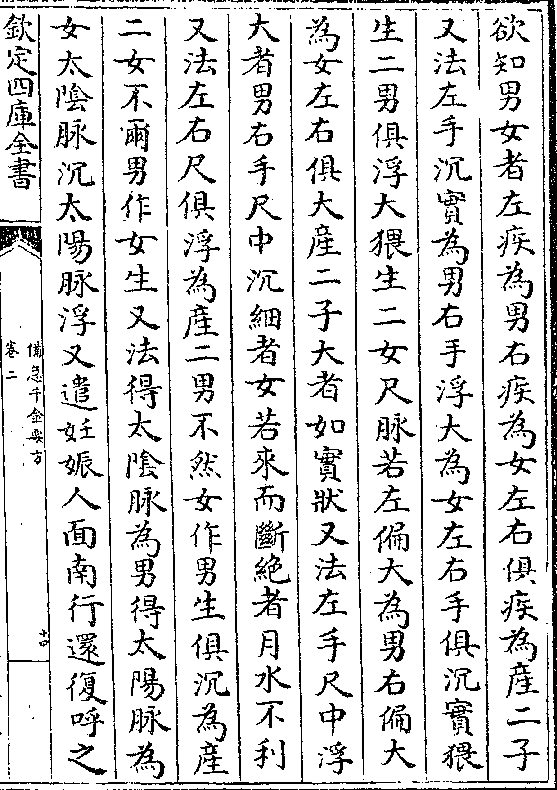 欲知男女者左疾為男右疾為女左右俱疾為産二子
又法左手沉實為男右手浮大為女左右手俱沉實猥
生二男俱浮大猥生二女尺脉若左偏大為男右偏大
為女左右俱大産二子大者如實狀又法左手尺中浮
大者男右手尺中沉細者女若來而斷絶者月水不利
又法左右尺俱浮為産二男不然女作男生俱沉為産
二女不爾男作女生又法得太陰脉為男得太陽脉為
女太陰脉沉太陽脉浮又遣妊娠人面南行還復呼之
欽定四庫全書
備急千金要方
卷二
十四